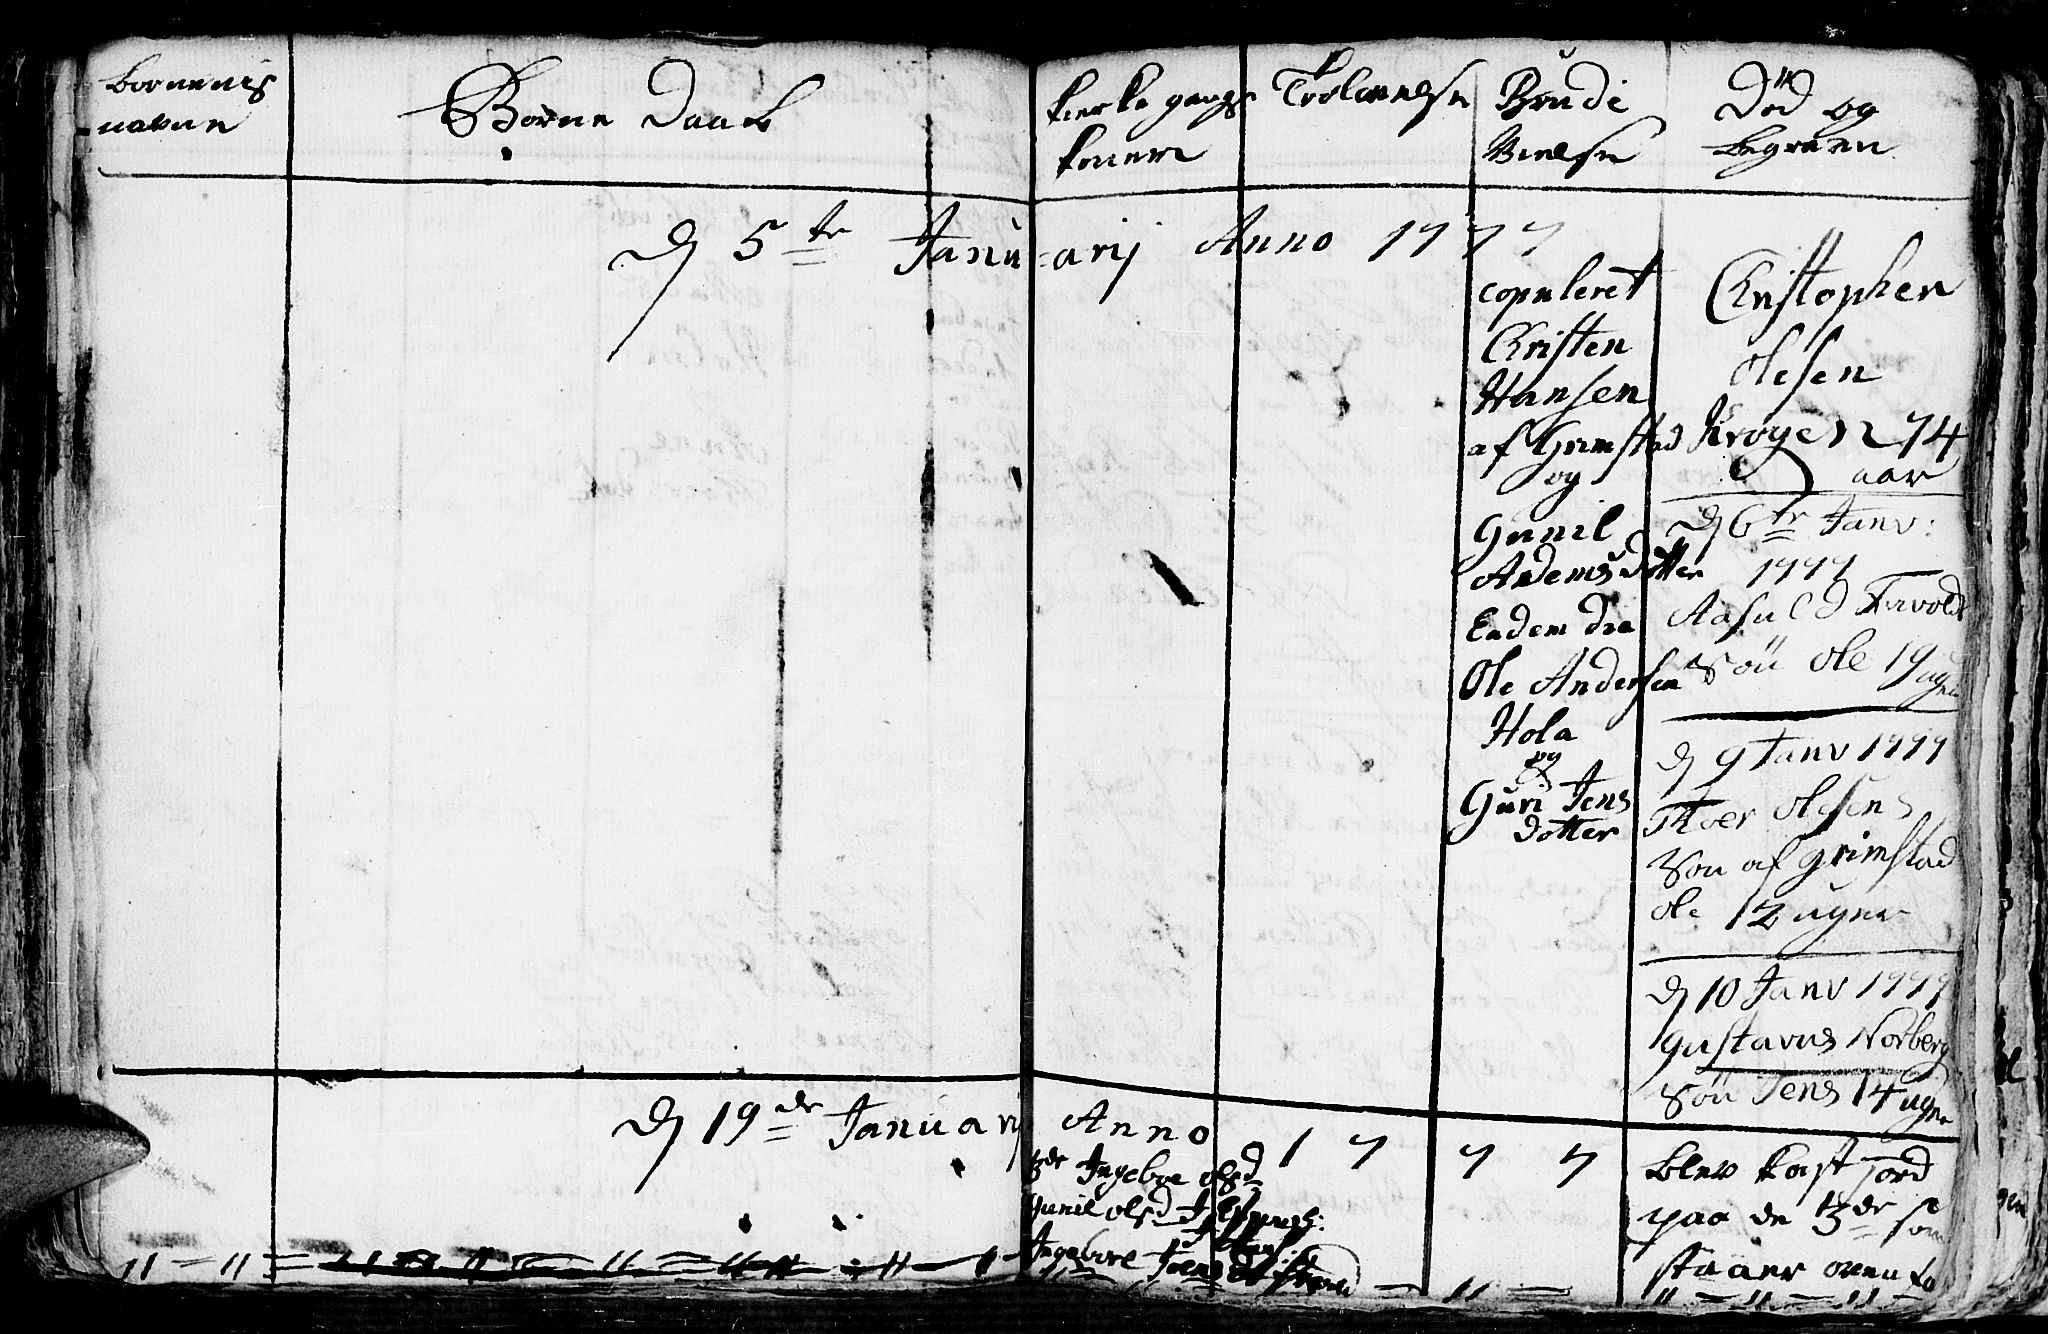 Børnenis
navne
Børne Daab
kierke gangs
koner
Trolovelse
Brude
Vielse
Død og
begraven
d 5te Janu=arij Anno 1777
copuleret
Christen
Hansen
af Grimstad
og
Gunil
Andersdotter
Eadem die
Ole Andersen
Hola
og
Guri Jens
dotter
Christopher
Olesen
Krøgen 74
aar
d 6te Janv:
1777
Aasuld
Søn Ole 19 ugner
d 9 Janv 1777
Thoer Olesens
Søn af Grimstad
Ole 12 ugner
d 10 Janv 1777
Gustavus Norberg
Søn Jens 14 ugner
d 19de Januarij Anno 1777
3de Ingebor olsd
Gunil olsd
Ingebore
blev kast Jord
paa de 3de som
staaer oven